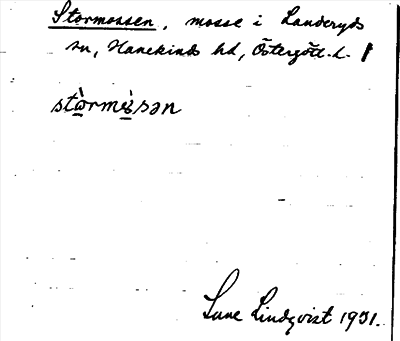 Stormossen, mosse i Landeryds
sn, Hanekinds hd, Östergötl. l.
stὼrmɷ̀sən
Sune Lindqvist 1931.